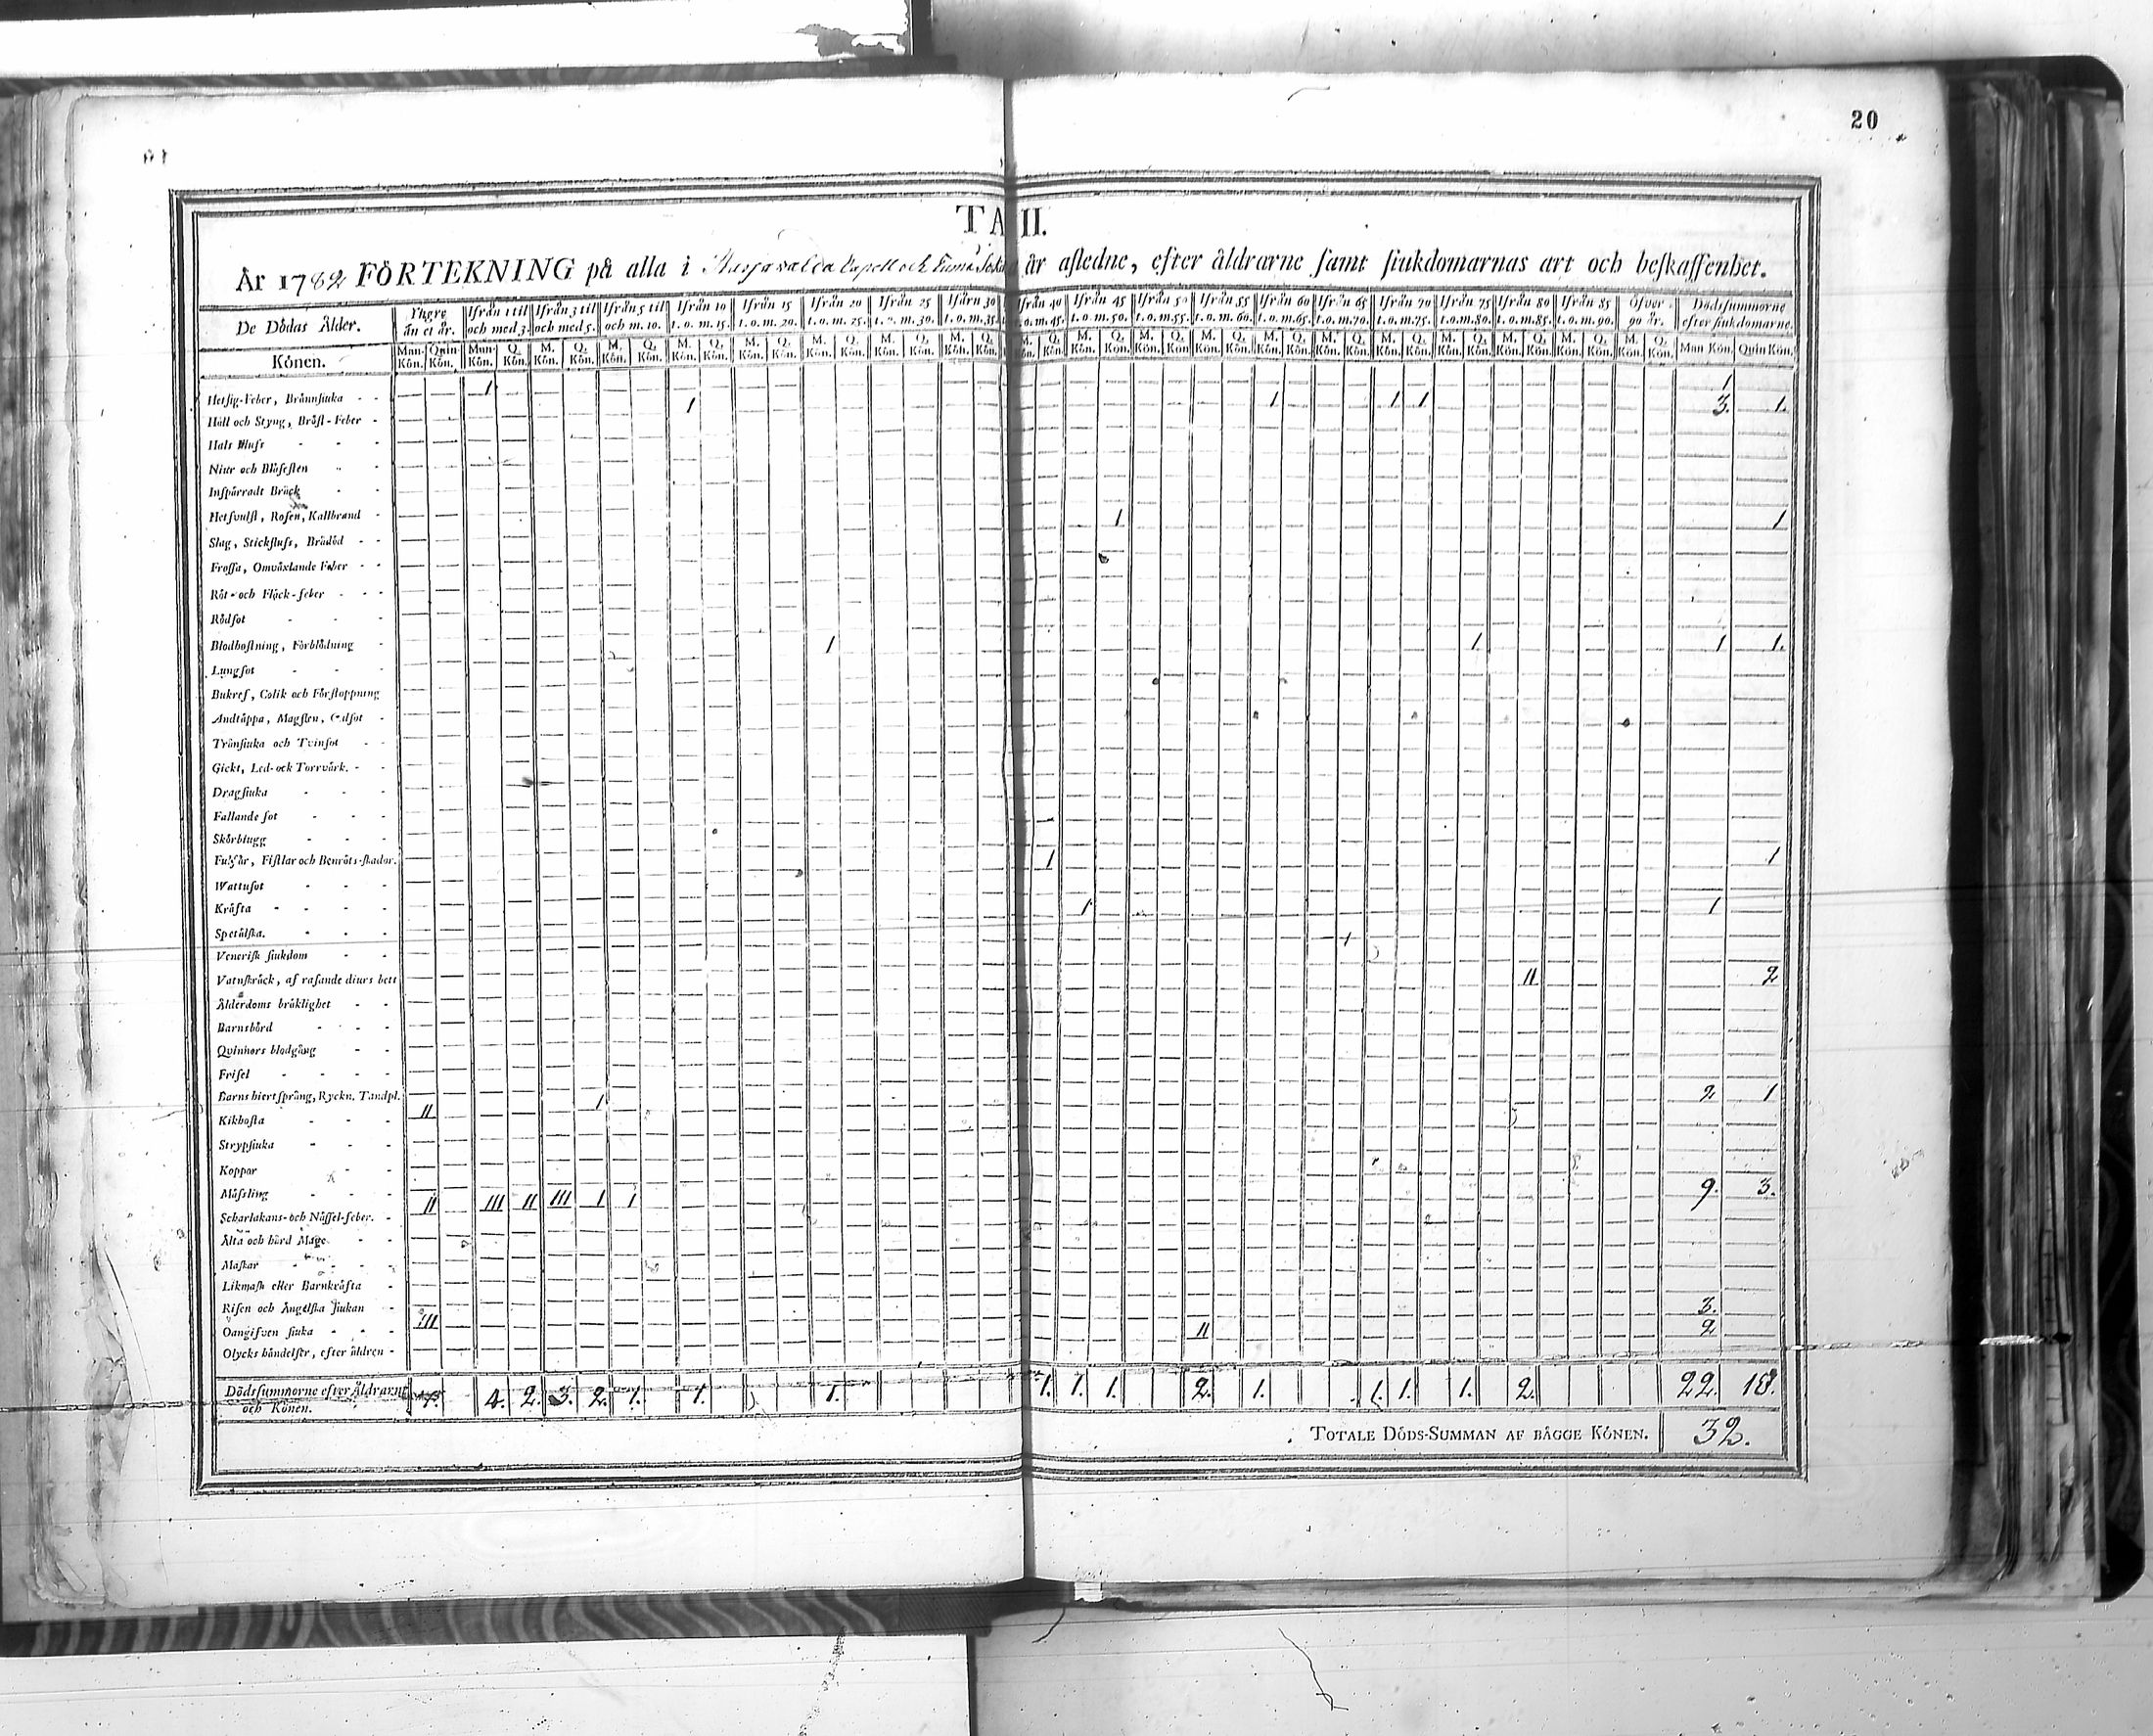 20
TA II.
År 1782 FÖRTEKNING på alla i Capell och år afledne, efter åldrarne samt siukdomarnas art och beskaffenhet.
De Dödas Ålder. Yngre än et år. Ifrån 1 til och med 3. Ifrån 3 til och med 5. Ifrån 5 til och m. 10. Ifrån 10 t. o. m. 15. Ifrån 15 t. o. m. 20. Ifrån 20 t. o. m. 25. Ifrån 25 t. o. m. 30. Ifårn 30 t. o. m. 35. Ifrån 40 t. o. m. 45. Ifrån 45 t. o. m. 50. Ifrån 50 t. o. m. 55. Ifrån 55 t. o. m. 60. Ifrån 60 t. o. m. 65. Ifrån 65 t. o. m. 70. Ifrån 70 t. o. m. 75. Ifrån 75 t. o. m. 80. Ifrån 80 t. o. m. 85. Ifrån 85 t. o. m. 90. Öfver 90 år. Dödssummorne efter siukdomarne.
Könen. Man-Kön. Quin-Kön. Man-Kön. Q. Kön. M. Kön. Q. Kön. M. Kön. Q. Kön. M. Kön. Q. Kön. M. Kön. Q. Kön. M. Kön. Q. Kön. M. Kön. Q. Kön. M. Kön. Q. Kön. M. Kön. Q. Kön. M. Kön. Q. Kön. M. Kön. Q. Kön. M. Kön. Q. Kön. M. Kön. Q. Kön. M. Kön. Q. Kön. M. Kön. Q. Kön. M. Kön. Q. Kön. M. Kön. Q. Kön. M. Kön. Q. Kön. M. Kön. Q. Kön. Man Kön. Quin Kön.
Hetsig-Feber, Brännsiuka - - 1 1
Håll och Styng, Bröst-Feber - 1 1 1 1 3. 1.
Hals Fluss - - -
Niur och Blåsesten - -
Inspärradt Bråck - -
Hetsvulst, Rosen, Kallbrand -
Slag, Stickfluss, Brådöd - - 1 1
Frossa, Omväxlande Feber - -
Röt- och Fläck-feber - - -
Rödsot - - -
Blodhostning, Förblödning -
Lungsot - - - 1 1. 1 1.
Bukref, Colik och Förstoppning
Andtäppa, Magsten, Gulsot -
Trånsiuka och Tvinsot - -
Gickt, Led- ock Torrvärk. - -
Dragsiuka - - -
Fallande sot - - -
Skörbiugg - - -
Fulsår, Fistlar och Benröts-skador.
Wattusot - - - 1 1
Kräfta - - - -
Spetälska. - - - 1 1
Venerisk siukdom - - 1
Vatnskräck, af rasande diurs bett
Ålderdoms bräklighet - - 11 2
Barnsbörd - - -
Qvinnors blodgång - -
Frisel - - - -
Barns hiertsprång, Ryckn. Tandpl.
Kikhosta - - - 11 1 2 1
Strypsiuka - - -
Koppar - -
Mässling - - -
Scharlakans- och Nässel-feber. - 11 111 11 111 1 1 9. 3.
Älta och hård Mage - -
Maskar - - - -
Likmask eller Barnkräfta -
Risen och Ängelska siukan -
Oangifven siuka - - - 111 3.
Olycks händelser, efter äldren - 11 2
Dödssummorne efter Åldrarne och Könen. 7. 4. 2. 3. 2. 1. 1. 1. 1. 1. 1. 2. 1. 1. 1. 1. 2. 22. 10.
TOTALE DÖDS-SUMMAN AF BÄGGE KÖNEN. 32.